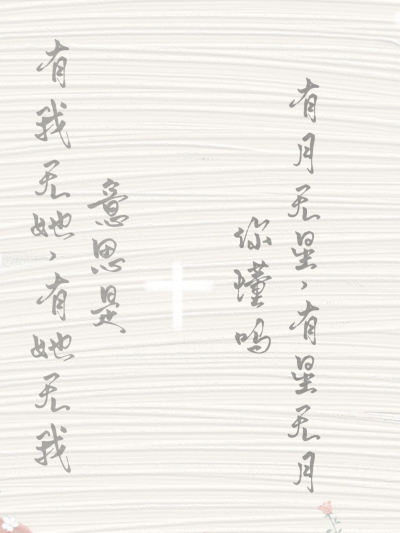 有月无星，有星无月
你懂吗
意思是
有我无她，有她无我